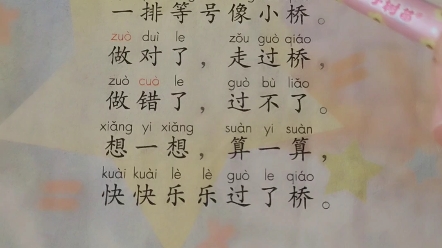 一排等号像小桥。
zuò duì le zǒu guò qiáo
做对了，走过桥，
zuò cuò le guò bù liǎo
做错了，过不了。
xiǎng yi xiǎng suàn yi suàn
想一想，算一算，
kuài kuài lè lè guò le qiáo
快快乐乐过了桥。